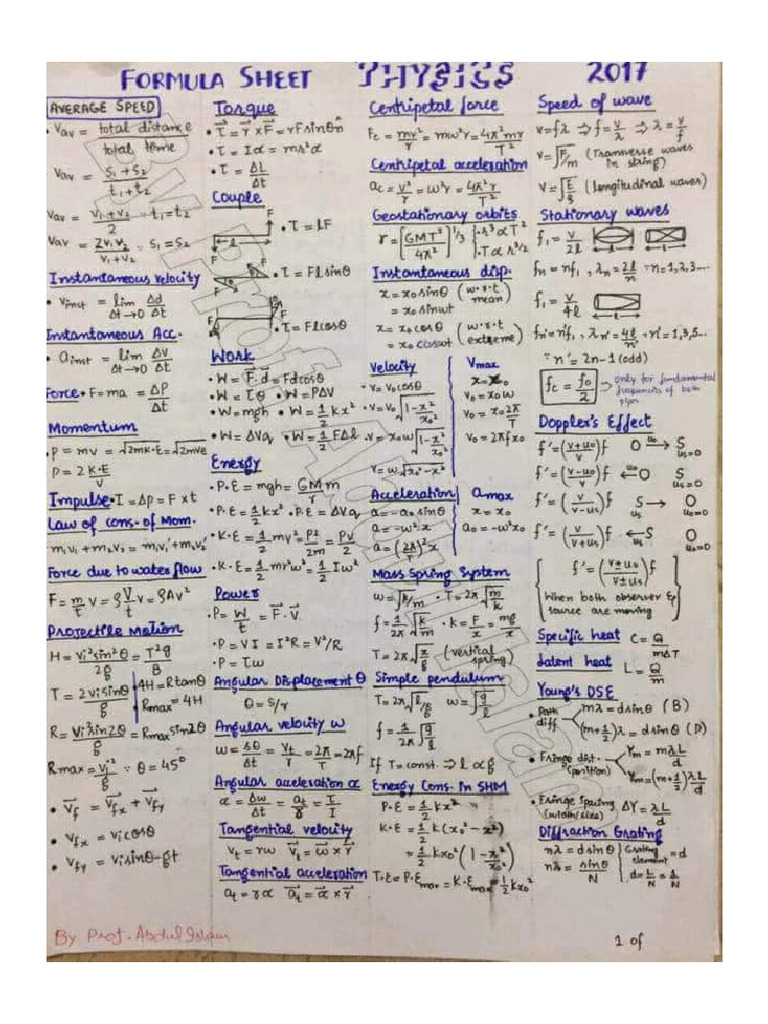 FORMULA SHEET PHYSICS 2017
AVERAGE SPEED
• Vav = total distance / total time
Vav = S₁+S₂ / t₁+t₂
Vav = v₁+v₂ / 2 ∵ t₁=t₂
Vav = 2v₁v₂ / v₁+v₂ ∵ S₁=S₂
Instantaneous velocity
• Vinst = lim Δt→0 Δd/Δt
Instantaneous Acc-
• ainst = lim Δt→0 ΔV/Δt
Force • F = ma = ΔP/Δt
Momentum
• P = mv = √2mK·E = √2mVe
P = 2K·E / V
Impulse • I = Δp = F × t
Law of cons- of Mom.
m₁v₁ + m₂v₂ = m₁v₁' + m₂v₂'
Force due to water flow
F = m/t v = ρ V/t v = ρAv²
Projectile Motion
H = vi²sin²θ / 2g = T²g / 8
T = 2visinθ / g
4H = Rtanθ
Rmax = 4H
R = vi²sin2θ / g = Rmax sin2θ
Rmax = vi² / g ∵ θ = 45°
• Vf = Vfx + Vfy
• Vfx = vicosθ
• Vfy = visinθ-gt
By Prof. Abdul Islam
Torque
• τ = r × F = rFsinθn̂
• τ = Iα = mr²α
• τ = ΔL/Δt
Couple
F
• τ = lF
l
F
F
• τ = Flsinθ
F
F
• τ = Flcosθ
F
Work
• W = F·d = Fdcosθ
• W = τθ • W = PΔV
• W = mgh • W = 1/2 Kx²
• W = ΔVq • W = 1/2 FΔl
Energy
• P·E = mgh = GMm / r
• P·E = 1/2 kx² • P.E = ΔVq
• K·E = 1/2 mv² = P²/2m = PV/2
• K·E = 1/2 mr²w² = 1/2 Iw²
Power
• P = W/t = F·V
• P = VI = I²R = V²/R
• P = τω
Angular Displacement θ
θ = S/r
Angular velocity w
ω = Δθ/Δt = Vt/r = 2π/T = 2πf
Angular acceleration α
α = Δw/Δt = at/r = τ/I
Tangential velocity
Vt = rw Vt = w × r
Tangential acceleration
at = rα at = α × r
Centripetal force
Fc = mv²/r = mw²r = 4π²mr / T²
Centripetal acceleration
ac = v²/r = ω²r = 4π²r / T²
Geostationary orbits
r = [GMT² / 4π²]^1/3
• r³ ∝ T²
• T ∝ r^3/2
Instantaneous disp.
x = x₀sinθ (w·r·t mean)
= x₀sinwt
x = x₀cosθ (w·r·t extreme)
= x₀coswt
Velocity
v = v₀cosθ
• v = v₀ √1-x²/x₀²
• v = x₀w √1-x²/x₀²
v = w√x₀²-x²
Vmax
v₀ = x₀w
v₀ = x₀ 2π/T
v₀ = 2πfx₀
Acceleration
a = -a₀sinθ
a = -ω²x
a = (2π/T)² x
amax
x = x₀
a₀ = -w²x₀
Mass Spring System
w = √k/m • T = 2π√m/k
f = 1/2π √k/m • K = F/x = mg/x
T = 2π√x/g (vertical spring)
Simple pendulum
T = 2π√l/g w = √g/l
f = 1/2π √g/l
If T = const. ⇒ l ∝ g
Energy Cons- in SHM
P·E = 1/2 kx²
K·E = 1/2 k(x₀² - x²)
= 1/2 kx₀² (1 - x²/x₀²)
T·E = P·Emax = K·Emax = 1/2 kx₀²
Speed of wave
v = fλ ⇒ f = v/λ ⇒ λ = v/f
v = √F/m (Transverse waves in string)
V = √E/ρ (longitudinal waves)
Stationary waves
f₁ = v/2l
fn = nf₁, λn = 2l/n ∵ n = 1,2,3...
f₁ = v/4l
fn' = n'f₁, λn' = 4l/n' ∵ n' = 1,3,5...
∵ n' = 2n-1 (odd)
fc = fo/2 → only for fundamental frequencies of both pipes
Doppler's Effect
f' = (v+uo / v) f O uo → S us=0
f' = (v-uo / v) f uo ← O S us=0
f' = (v / v-us) f S us → O uo=0
f' = (v / v+us) f ← S us O uo=0
f' = (v±uo / v±us) f
When both observer & source are moving
Specific heat C = Q / mΔT
latent heat L = Q/m
Young's DSE
• Path diff
mλ = dsinθ (B)
(m+1/2)λ = dsinθ (D)
• Fringe dist- (position)
Ym = mλL / d
Ym = (m+1/2) λL / d
• Fringe spacing (width/size) ΔY = λL / d
Diffraction Grating
nλ = dsinθ
nλ = sinθ / N
Grating element = d
d = L/N = 1/N
1 of